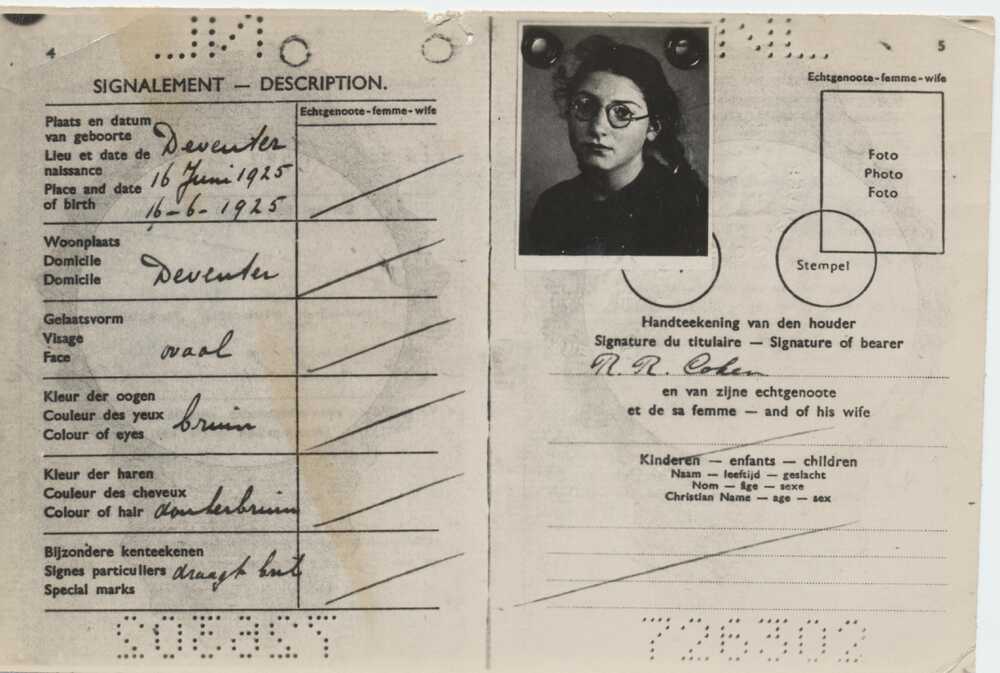 4
SIGNALEMENT — DESCRIPTION.
Echtgenoote-femme-wife
Plaats en datum
van geboorte
Lieu et date de
naissance
Place and date
of birth
Deventer
16 Juni 1925
16-6-1925
Woonplaats
Domicile
Domicile
Deventer
Gelaatsvorm
Visage
Face
ovaal
Kleur der oogen
Couleur des yeux
Colour of eyes
bruin
Kleur der haren
Couleur des cheveux
Colour of hair
donkerbruin
Bijzondere kenteekenen
Signes particuliers
Special marks
draagt bril
5
Echtgenoote-femme-wife
Foto
Photo
Foto
Stempel
Handteekening van den houder
Signature du titulaire — Signature of bearer
R. R. Cohen
en van zijne echtgenoote
et de sa femme — and of his wife
Kinderen — enfants — children
Naam — leeftijd — geslacht
Nom — âge — sexe
Christian Name — age — sex
726302